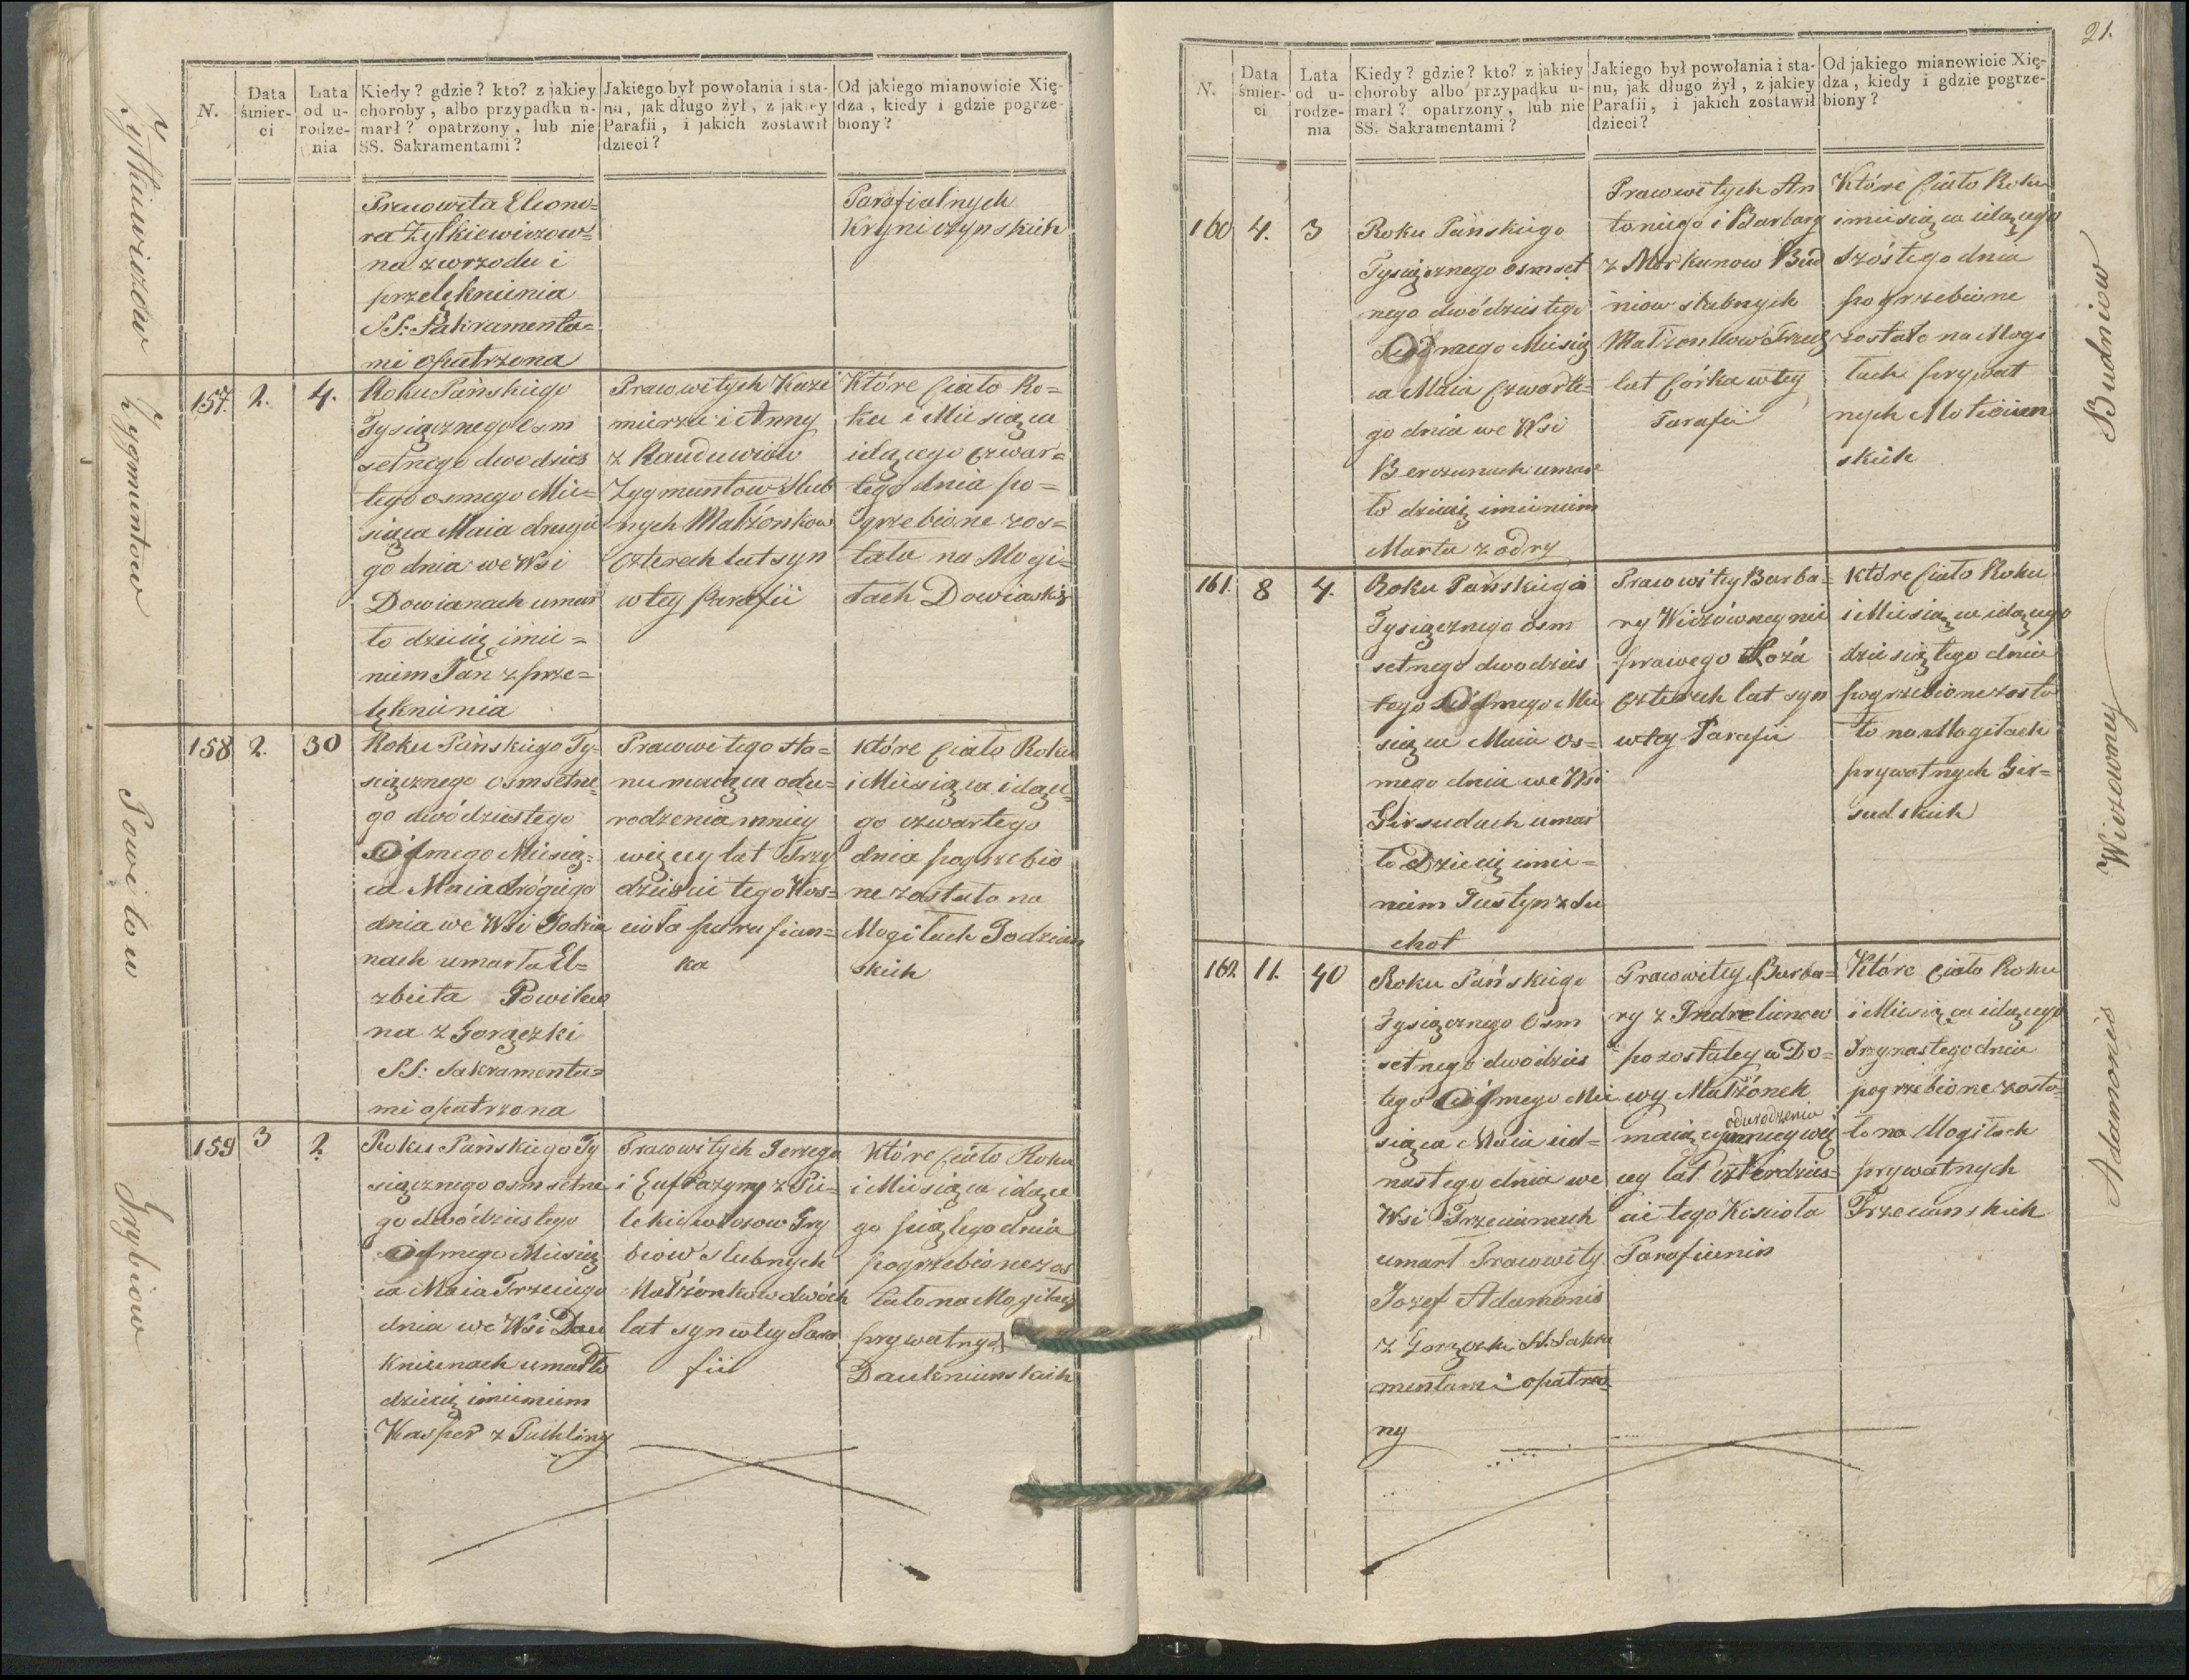 21.
N.
Data
śmier-
ci
Lata
od u-
rodze-
nia
Kiedy? gdzie? kto? z jakiey
choroby, albo przypadku u-
marł? opatrzony, lub nie
SS. Sakramentami?
Jakiego był powołania i sta-
nu, jak długo żył, z jakiey
Parafii, i jakich zostawił
dzieci?
Od jakiego mianowicie Xię-
dza, kiedy i gdzie pogrze-
biony?
Żyłkiewiczow
Prawowita Eleono=
ra Żyłkiewiczow=
na z wrzodu i
przelęknienia
SS: Sakramenta=
mi opatrzona
Parafialnych
Kryniczynskich
Zygmuntow
157. 2. 4.
Roku Pańskiego
Tysiącznego osm
setnego dwodzies
tego osmego Mie=
siąca Maia drugie
go dnia we Wsi
Dowianach umar
ło dziecię imie=
niem Jan z prze=
lęknienia
Prawowitych Kazi
mierza i Anny
z Rauduwiow
Zygmuntow Slub
nych Małżonkow
czterech lat syn
w tey Parafii
Które Ciało Ro=
ku i Miesiąca
idącego czwar=
tego dnia po=
grzebione zos=
tało na Mogi=
łach Dowiańskich
Powiłow
158 2. 30
Roku Pańskiego Ty=
siącznego osmsetne=
go dwódziestego
osmego Miesią=
ca Maia drógiego
dnia we Wsi Jodzia
nach umarła El=
zbieta Powiłow
na z Gorączki
SS: Sakramenta=
mi opatrzona
Prawowitego sta=
nu maiąca od u=
rodzenia mniey
więcey lat Trzy
dzieści tego Kos=
cioła parafian=
ka
które Ciało Roku
i Miesiąca idące=
go czwartego
dnia pogrzebio
ne zostało na
Mogiłach Jodzian
skich
Grybiow
159 3 2
Roku Pańskiego Ty
siącznego osmsetne
go dwódziestego
osmego Miesią
ca Maia Trzeciego
dnia we Wsi Dau
kniunach umarło
dziecię imieniem
Kasper z Puchliny
Prawowitych Jerzego
i Eufrazyny z Pie=
lekiewiczow Gry
biow slubnych
Małżonkow dwóch
lat syn w tey Para
fii
Które Ciało Roku
i Miesiąca idące
go piątego dnia
pogrzebione zos
tało na Mogiłach
prywatnych
Daukniunskich
N.
Data
śmier-
ci
Lata
od u-
rodze-
nia
Kiedy? gdzie? kto? z jakiey
choroby albo przypadku u-
marł? opatrzony, lub nie
SS. Sakramentami?
Jakiego był powołania i sta-
nu, jak długo żył, z jakiey
Parafii, i jakich zostawił
dzieci?
Od jakiego mianowicie Xię-
dza, kiedy i gdzie pogrze-
biony?
Budniow
160 4. 3
Roku Pańskiego
Tysiącznego osmset
nego dwódziestego
osmego Miesią
ca Maia czwarte=
go dnia we Wsi
Berzunach umar
ło dziecię imieniem
Marta z odry
Prawowitych An
toniego i Barbary
z Mirkunow Bud
niow slubnych
Małżonkow Trzech
lat córka w tey
Parafii
Które Ciało Roku
i miesiąca idącego
szóstego dnia
pogrzebione
zostało na Mogi
łach prywat
nych Moticiun
skich
Wiczowney
161. 8 4.
Roku Pańskiego
Tysiącznego osm
setnego dwodzies
tego osmego Mie
siąca Maia os=
mego dnia we Wsi
Girsudach umar
ło Dziecię imie=
niem Justyn z Su
chot
Prawowitey Barba=
ry Wiczówney nie
prawego Łoża
czterech lat syn
w tey Parafii
które Ciało Roku
i Miesiąca idącego
dziesiątego dnia
pogrzebione zosta
ło na Mogiłach
prywatnych Gir=
sudskich
Adamonis
162. 11. 40
Roku Pańskiego
Tysiącznego Osm
setnego dwodzies
tego osmego Mie
siąca Maia iid=
nastego dnia we
Wsi Trzecianach
umarł Prawowity
Jozef Adamonis
z Gorączki SS. Sakra
mentami opatrzo
ny
Prawowitey Barba=
ry z Indrelunow
pozostałey w Do=
wy Małżonek
od urodzenia
maiący mniey wię
cey lat czterdzies=
ci tego Kościoła
Parafianin
Które Ciało Roku
i Miesiąca idącego
Trzynastego dnia
pogrzebione zosta=
ło na Mogiłach
prywatnych
Trzecianskich